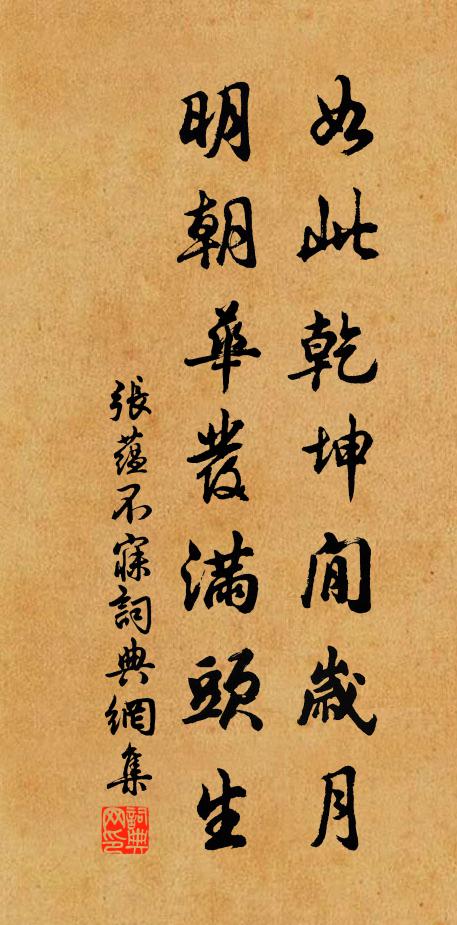 如此乾坤閒歲月
明朝華發滿頭生
張蘊不寐詞典網集
詞典网印